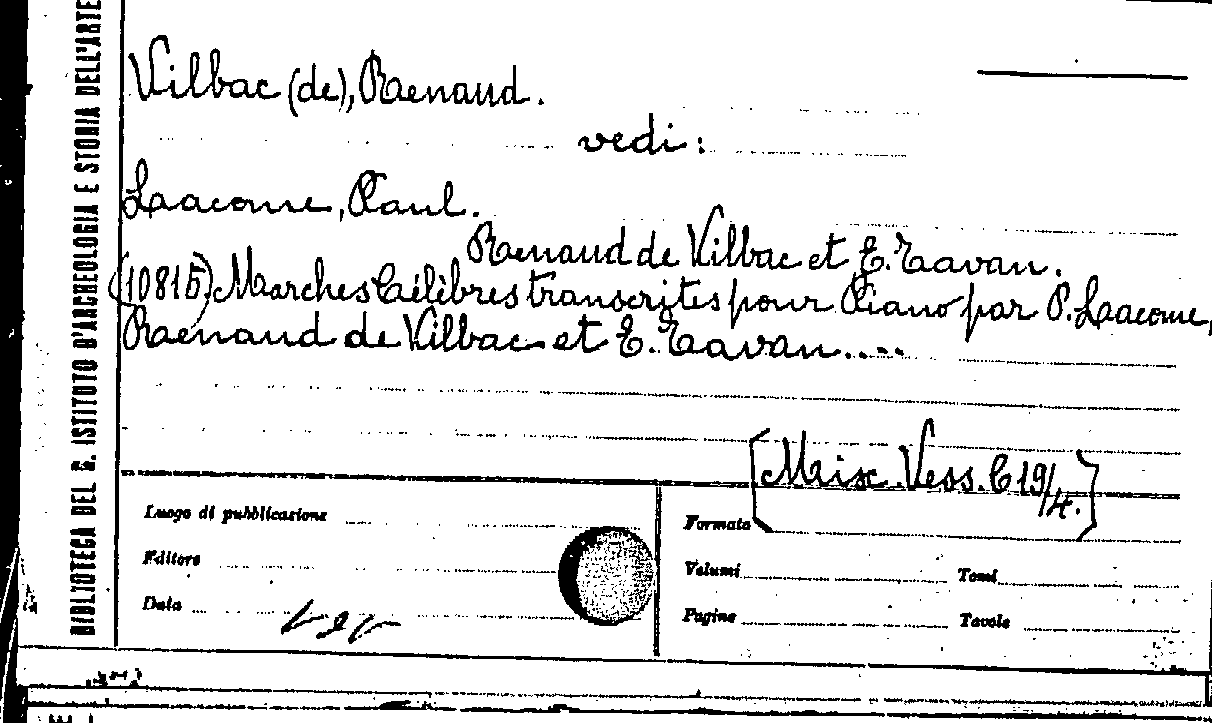 BIBLIOTECA DEL R. ISTITUTO D'ARCHEOLOGIA E STORIA DELL'ARTE
Vilbac (de), Renaud.
vedi:
Lacome, Paul.
Renaud de Vilbac et E. Tavan.
(10815) Marches Célèbres transcrites pour Piano par P. Lacome,
Renaud de Vilbac et E. Tavan....
[Misc. Vess. C 19/4.]
Luogo di pubblicazione
Editore
Data
Formato
Volumi Tomi
Pagine Tavole